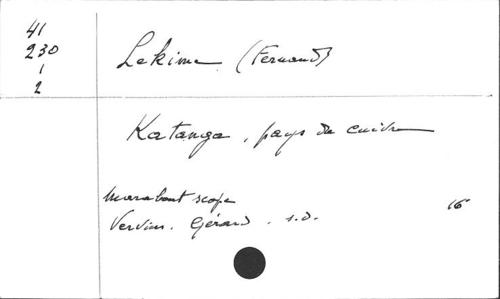 41
230
1
2
Lekime (Fernand)
Katanga, pays du cuivre
Marabout scope
Verviers. Gérard. s.d. 16°